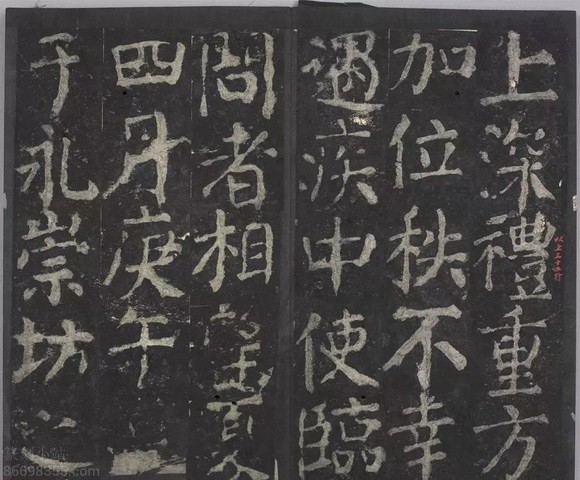 上深禮重方
加位秩不幸
遇疾中使臨
問者相
四月庚午
于永崇坊